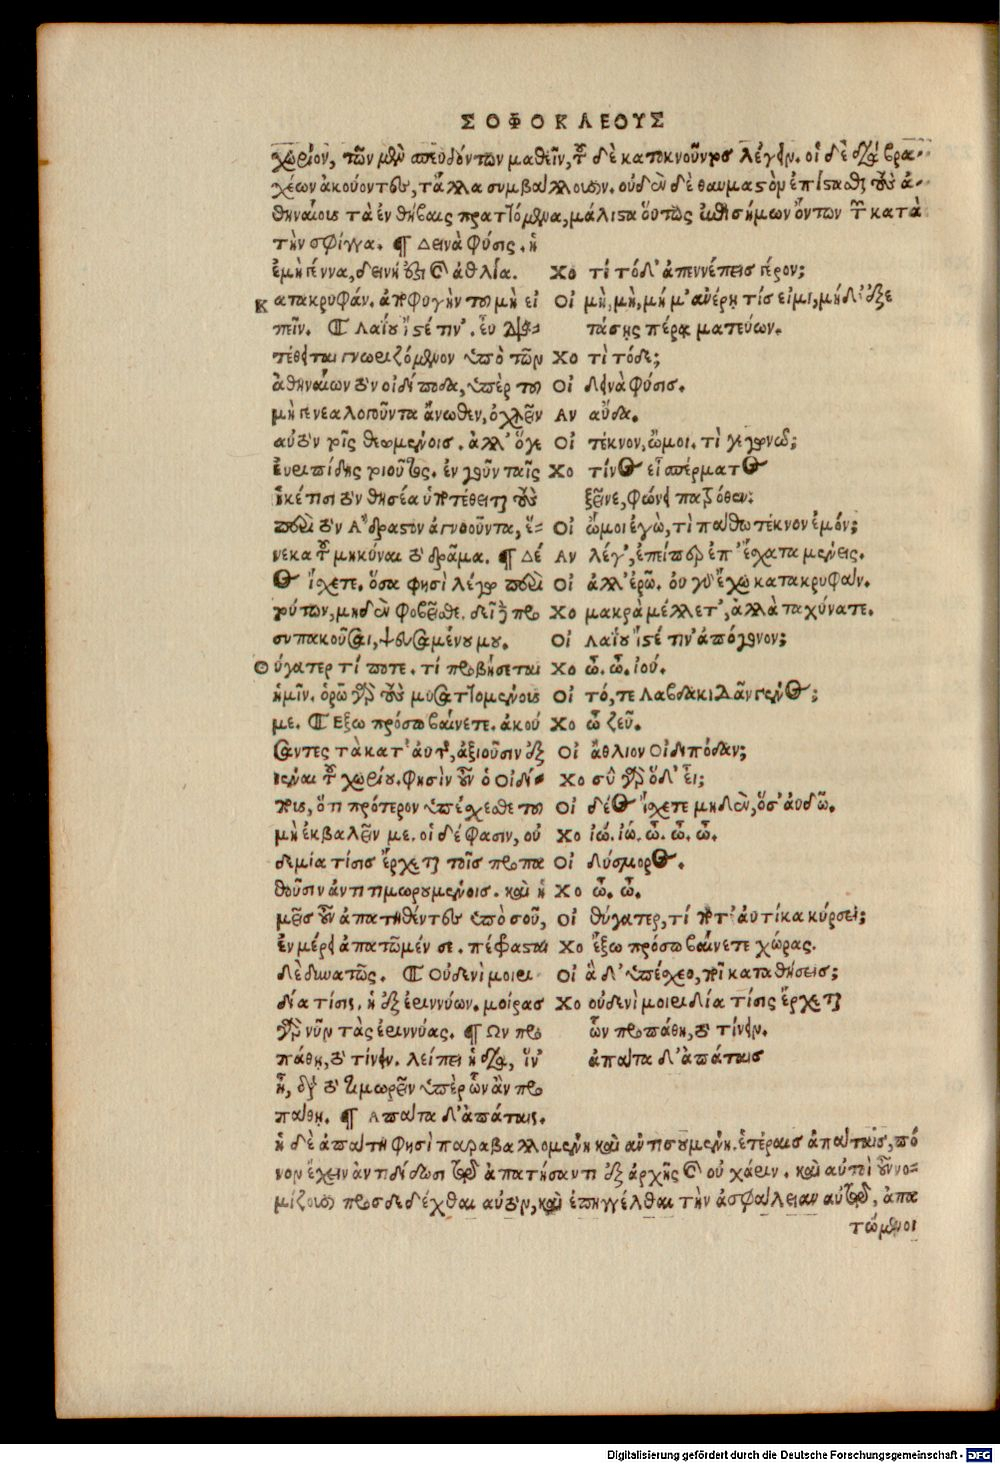 ΣΟΦΟΚΛΕΟΥΣ
χωρίον, τῶν μὲν σπευδόντων μαθεῖν, τοῦ δὲ κατοκνοῦντος λέγειν. οἱ δὲ διὰ βρα-
χέων ἀκούοντες, τἆλλα συμβάλλουσιν. οὐδὲν δὲ θαυμαστὸν ἐπίστασθαι τοὺς ἀ-
θηναίους τὰ ἐν θήβαις πραττόμενα, μάλιστα οὕτως ἐπισήμων ὄντων τῶν κατὰ
τὴν σφίγγα. ¶ Δεινὰ φύσις. ἡ
ἐμὴ γέννα, δεινή ἐστι καὶ ἀθλία.
κατακρυφάν. ἀποφυγὴν τοῦ μὴ εἰ
πεῖν. ¶ Λαΐου ἴστέ τιν'. εὖ
τέθειται γνωριζόμενον ὑπὸ τῶν
ἀθηναίων τὸν οἰδίποδα, ὑπὲρ τοῦ
μὴ γενεαλογοῦντα ἄνωθεν, ὀχλεῖν
αὐτὸν τοῖς θεωμένοις. ἀλλ' ὅγε
ἐυριπίδης τοιοῦτος. ἐν γοῦν ταῖς
ἱκέτισι τὸν θησέα ὑποτέθειται τοὺς
περὶ τὸν Ἄδραστον ἀγνοοῦντα, ἕ-
νεκα τοῦ μηκύναι τὸ δρᾶμα. ¶ Δέ
ος ἴσχετε. ὅσα φησὶ λέγω περὶ
τούτων, μηδὲν φοβεῖσθε.
συπακοῦσαι,
θύγατερ τί ποτε. τί προβήσεται
ἡμῖν. ὁρῶ γὰρ τοὺς μυσαττομένους
με. ¶ Εξω πρόσω βαίνετε. ἀκού
σαντες τὰ κατ' αὐτὸν, ἀξιοῦσιν ἐξ
ιέναι τοῦ χωρίου. φησὶν οὖν ὁ Οἰδί-
πους, ὅτι πρότερον ὑπέσχεσθε τοῦ
μὴ ἐκβαλεῖν με. οἱ δέ φασιν, οὐ
δεμία τίσις ἔρχεται τοῖς προπα
θοῦσιν ἀντιτιμωρουμένοις. καὶ ἡ
μεῖς οὖν ἀπατηθέντες ὑπὸ σοῦ,
ἐν μέρει ἀπατῶμέν σε. πέφασται
δὲ δυνατῶς. ¶ Οὐδενὶ μοιρι
δία τίσις. ἡ ἐξ ἐριννύων. μοίρας
γὰρ νῦν τὰς ἐριννύας. ¶ Ων προ
πάθῃ, τὸ τίνειν. λείπει ἡ διὰ, ἵν'
ᾖ, διὰ τὸ τιμωρεῖν ὑπὲρ ὧν ἂν προ
πάθῃ. ¶ Απάτα δ' ἀπάταις.
Χο τί τόδ' ἀπεννέπεις γέρον;
Οἰ μὴ, μὴ, μή μ' ἀνέρῃ τίς εἰμι, μηδ' ἐξε
τάσῃς πέρα ματεύων.
Χο τὶ τόδε;
Οἰ δεινὰ φύσις.
Αν αὔδα.
Οἰ τέκνον, ὤμοι. τὶ γεγωνῶ;
Χο τίνος εἶ σπέρματος
ξεῖνε, φώνει πατρόθεν;
Οἰ ὤμοι ἐγὼ, τὶ πάθω τέκνον ἐμόν;
Αν λέγ', ἐπείπερ ἐπ' ἔσχατα μένεις.
Οἰ ἀλλ' ἐρῶ. οὐ γὰρ ἔχω κατακρυφάν.
Χο μακρὰ μέλλετ', ἀλλὰ ταχύνατε.
Οἰ Λαΐου ἴστέ τιν' ἀπόγονον;
Χο ὦ. ὦ. ἰού.
Οἰ τό, τε Λαβδακιδᾶν γένος;
Χο ὦ ζεῦ.
Οἰ ἄθλιον Οἰδιπόδαν;
Χο σὺ γὰρ ὅδ' εἶ;
Οἰ δέος ἴσχετε μηδὲν, ὅσ' αὐδῶ.
Χο ἰώ. ἰώ. ὦ. ὦ. ὦ.
Οἰ δύσμορος.
Χο ὦ. ὦ.
Οἰ θύγατερ, τί ποτ' αὐτίκα κύρσει;
Χο ἔξω πρόσω βαίνετε χώρας.
Οἰ ἃ δ' ὑπέσχεο, ποῖ καταθήσεις;
Χο οὐδενὶ μοιριδία τίσις ἔρχεται
ὧν προπάθῃ, τὸ τίνειν.
ἀπάτα δ' ἀπάταις
ἡ δὲ ἀπάτη φησὶ παραβαλλομένη καὶ ἀντισουμένη ἑτέραις ἀπάταις, πό
νον ἔχειν ἀντιδίδωσι τῷ ἀπατήσαντι ἐξ ἀρχῆς καὶ οὐ χάριν. καὶ αὐτοὶ οὖν νο-
μίζουσι προσδεδέχθαι αὐτὸν, καὶ ἐπηγγέλθαι τὴν ἀσφάλειαν αὐτῷ, ἀπα
τώμενοι
Digitalisierung gefördert durch die Deutsche Forschungsgemeinschaft - DFG